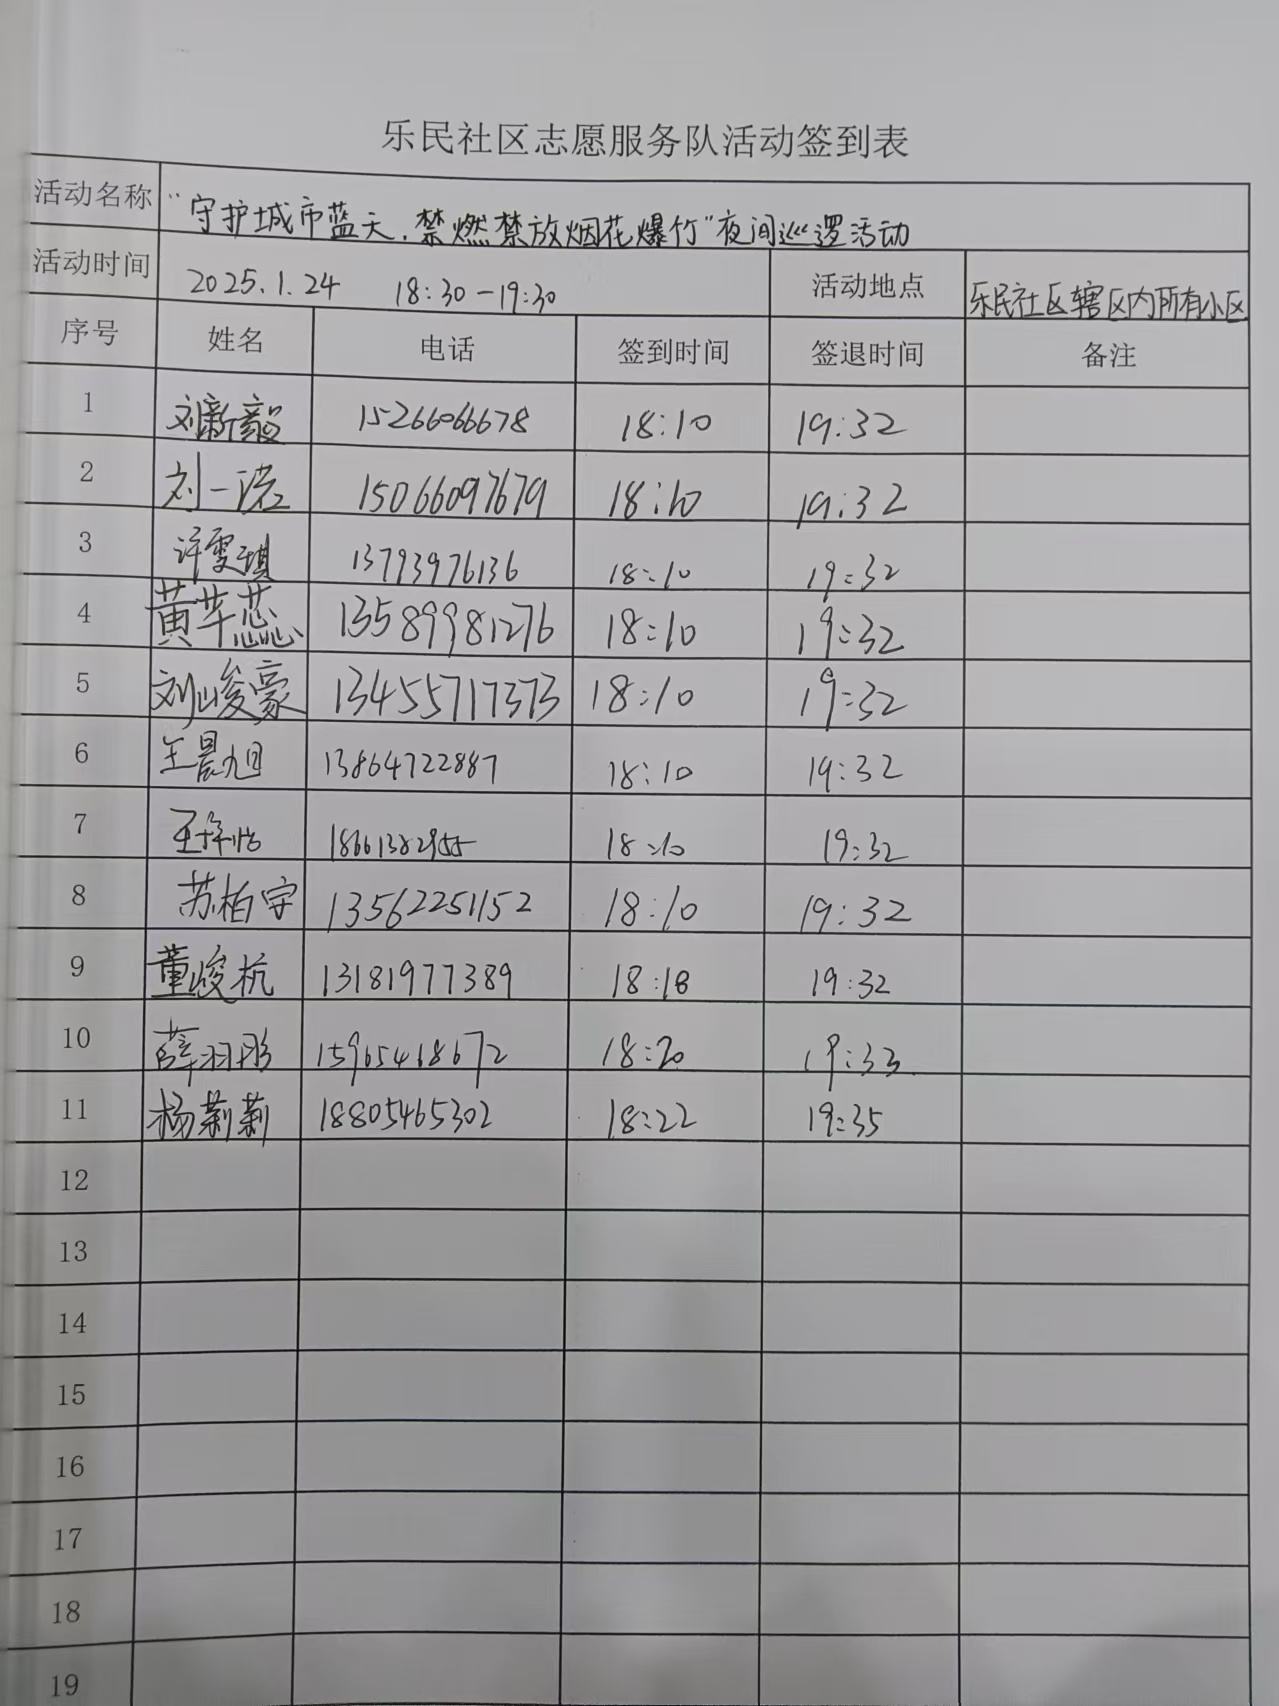 乐民社区志愿服务队活动签到表
活动名称 “守护城市蓝天.禁燃禁放烟花爆竹”夜间巡逻活动
活动时间 2025.1.24 18:30-19:30 活动地点 乐民社区辖区内所有小区
序号 姓名 电话 签到时间 签退时间 备注
1 刘新毅 15266066678 18:10 19:32
2 刘一诺 15066097679 18:10 19:32
3 许雯琪 13793976136 18:10 19:32
4 黄芊蕊 13589981276 18:10 19:32
5 刘峻豪 13455717373 18:10 19:32
6 王晨旭 13864722887 18:10 19:32
7 18661382955 18:10 19:32
8 苏柏宇 13562251152 18:10 19:32
9 董峻杭 13181977389 18:18 19:32
10 薛羽彤 15965468672 18:20 19:33
11 杨莉莉 18805465302 18:22 19:35
12
13
14
15
16
17
18
19